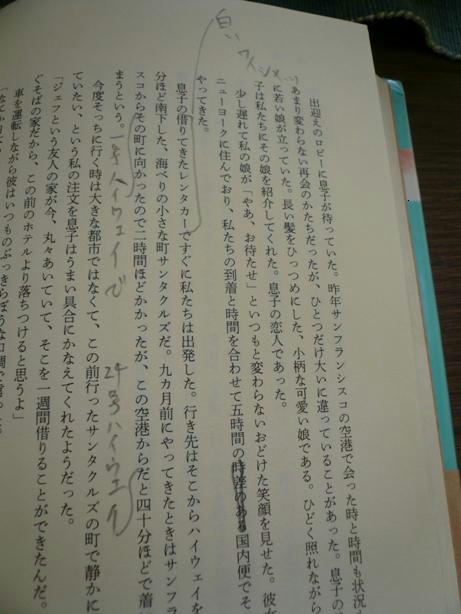 出迎えのロビーに息子が待っていた。昨年サンフランシスコの空港で会った時と時間も状況
あまり変わらない再会のかたちだったが、ひとつだけ大いに違っていることがあった。息子の
に若い娘が立っていた。長い髪をひっつめにした、小柄な可愛い娘である。ひどく照れながら
子は私たちにその娘を紹介してくれた。息子の恋人であった。
少し遅れて私の娘が「やあ、お待たせ」といつもと変わらないおどけた笑顔を見せた。彼
ニューヨークに住んでおり、私たちの到着と時間を合わせて五時間の時差のある国内便でそ
やってきた。
白い
息子の借りてきたレンタカーですぐに私たちは出発した。行き先はそこからハイウェイを
分ほど南下した、海べりの小さな町サンタクルズだ。九カ月前にやってきたときはサンフラ
スコからその町に向かったので二時間ほどかかったが、この空港からだと四十分ほどで着
まうという。
1号ハイウェイで
24号ハイウェイ
今度そっちに行く時は大きな都市ではなくて、この前行ったサンタクルズの町で静かに
ていたい、という私の注文を息子はうまい具合にかなえてくれたようだった。
「ジェフという友人の家が今、丸々あいていて、そこを一週間借りることができたんだ。
ぐそばの家だから、この前のホテルより落ちつけると思うよ」
車を運転しながら彼はいつものぶっきらぼうな口調で